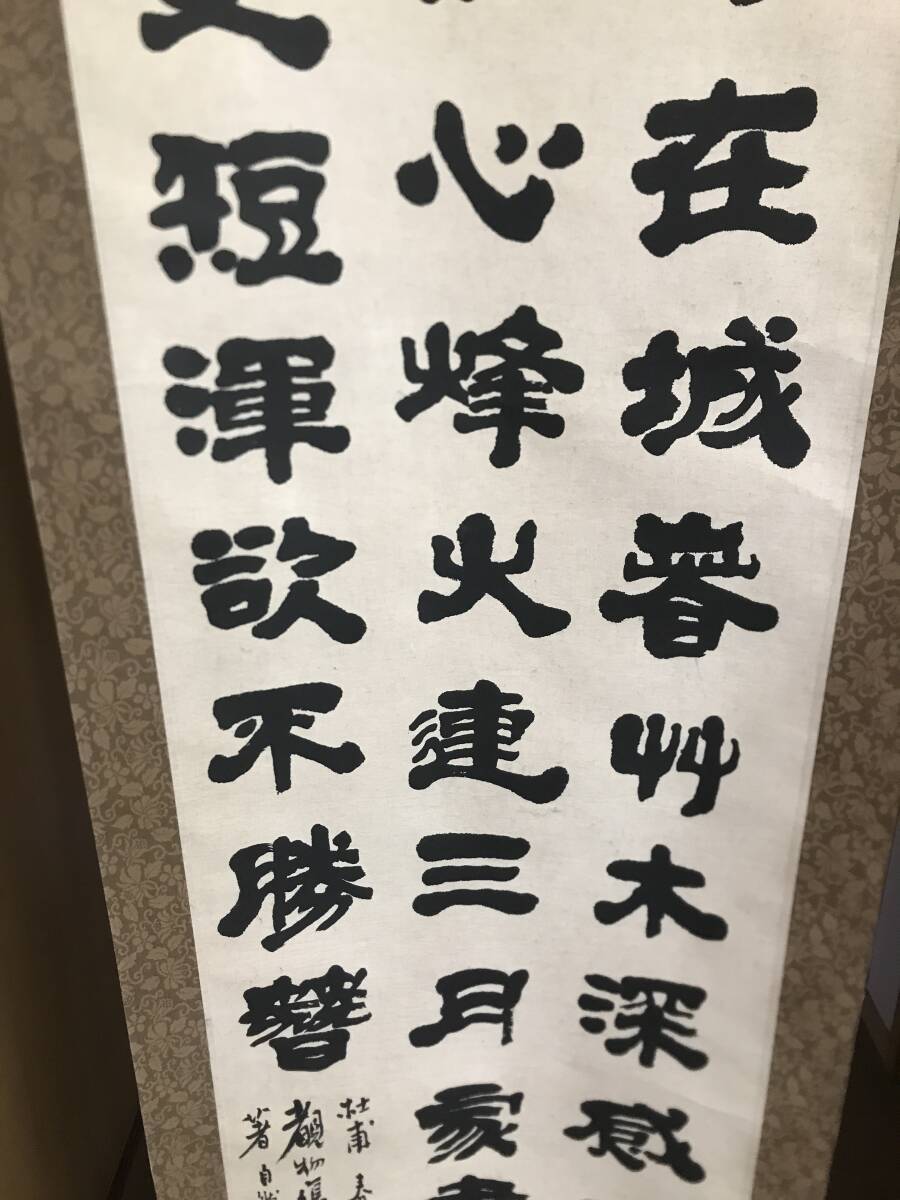 在城春艸木深感
心烽火連三月家書
更短渾欲不勝簪
杜甫春
觀物
著自